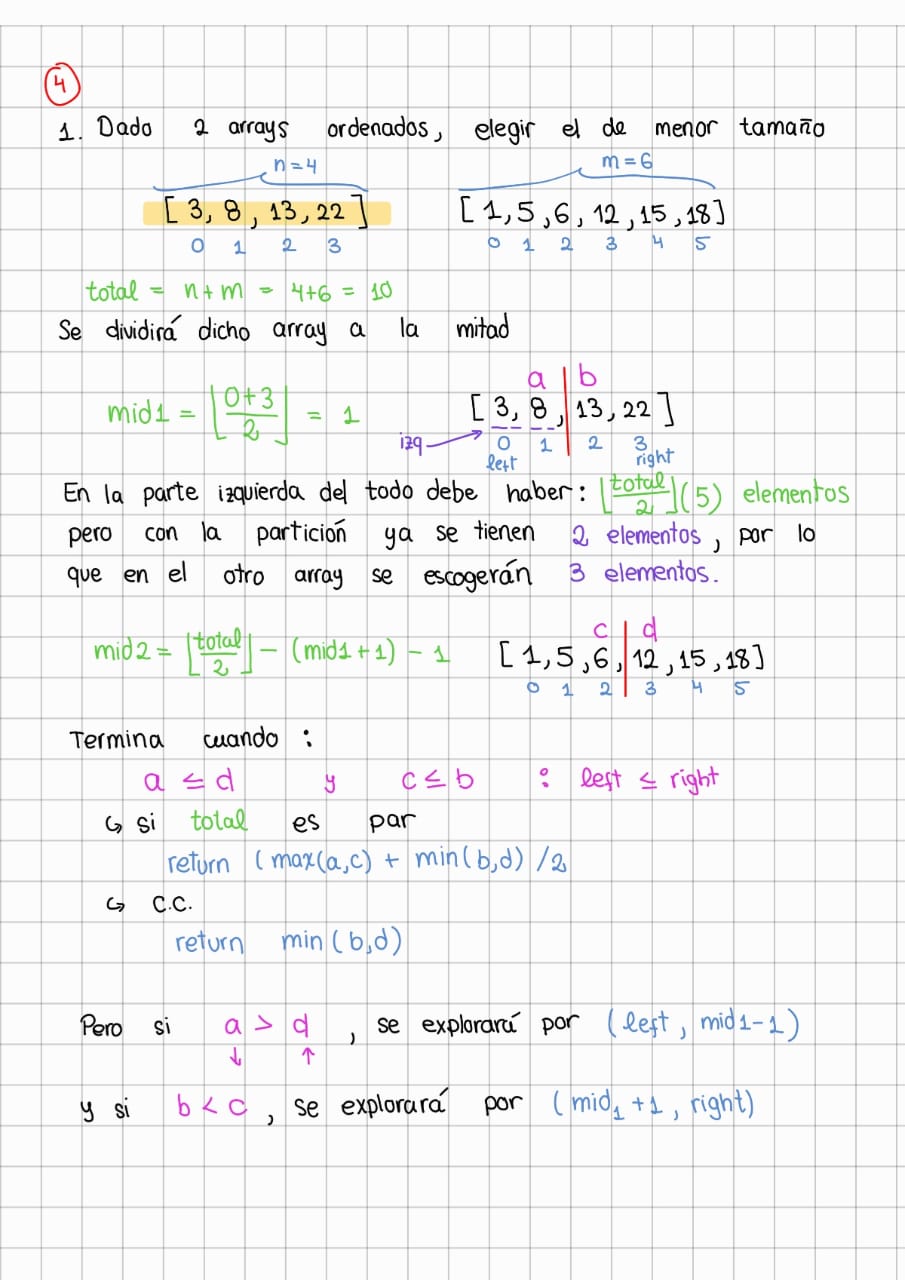 4
1. Dado 2 arrays ordenados, elegir el de menor tamaño
n=4 m=6
[3, 8, 13, 22] [1, 5, 6, 12, 15, 18]
0 1 2 3 0 1 2 3 4 5
total = n+m = 4+6 = 10
Se dividirá dicho array a la mitad
a | b
mid1 = ⌊(0+3)/2⌋ = 1 [3, 8, | 13, 22]
izq → 0 1 2 3
left right
En la parte izquierda del todo debe haber: ⌊total/2⌋(5) elementos
pero con la partición ya se tienen 2 elementos, por lo
que en el otro array se escogerán 3 elementos.
c | d
mid2 = ⌊total/2⌋ - (mid1+1) - 1 [1, 5, 6, | 12, 15, 18]
0 1 2 3 4 5
Termina cuando :
a ≤ d y c ≤ b : left ≤ right
↪ si total es par
return (max(a,c) + min(b,d) /2
↪ c.c.
return min(b,d)
Pero si a > d, se explorará por (left, mid1-1)
↓ ↑
y si b < c, se explorará por (mid₁ +1, right)